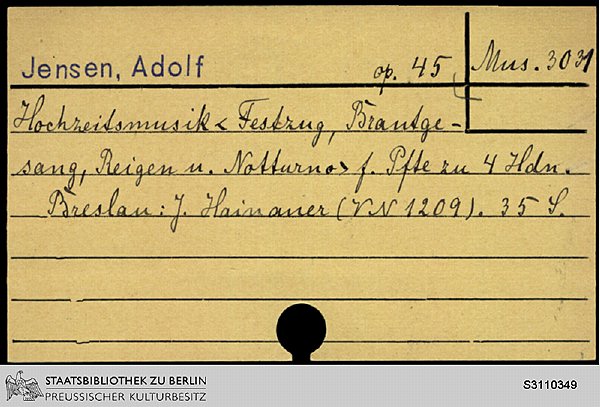 Jensen, Adolf op. 45 Mus. 3031
Hochzeitsmusik < Festzug, Brautge-
sang, Reigen u. Notturno> f. Pfte zu 4 Hdn.
Breslau: J. Hainauer (VN 1209). 35 S.
STAATSBIBLIOTHEK ZU BERLIN
PREUSSISCHER KULTURBESITZ
S3110349